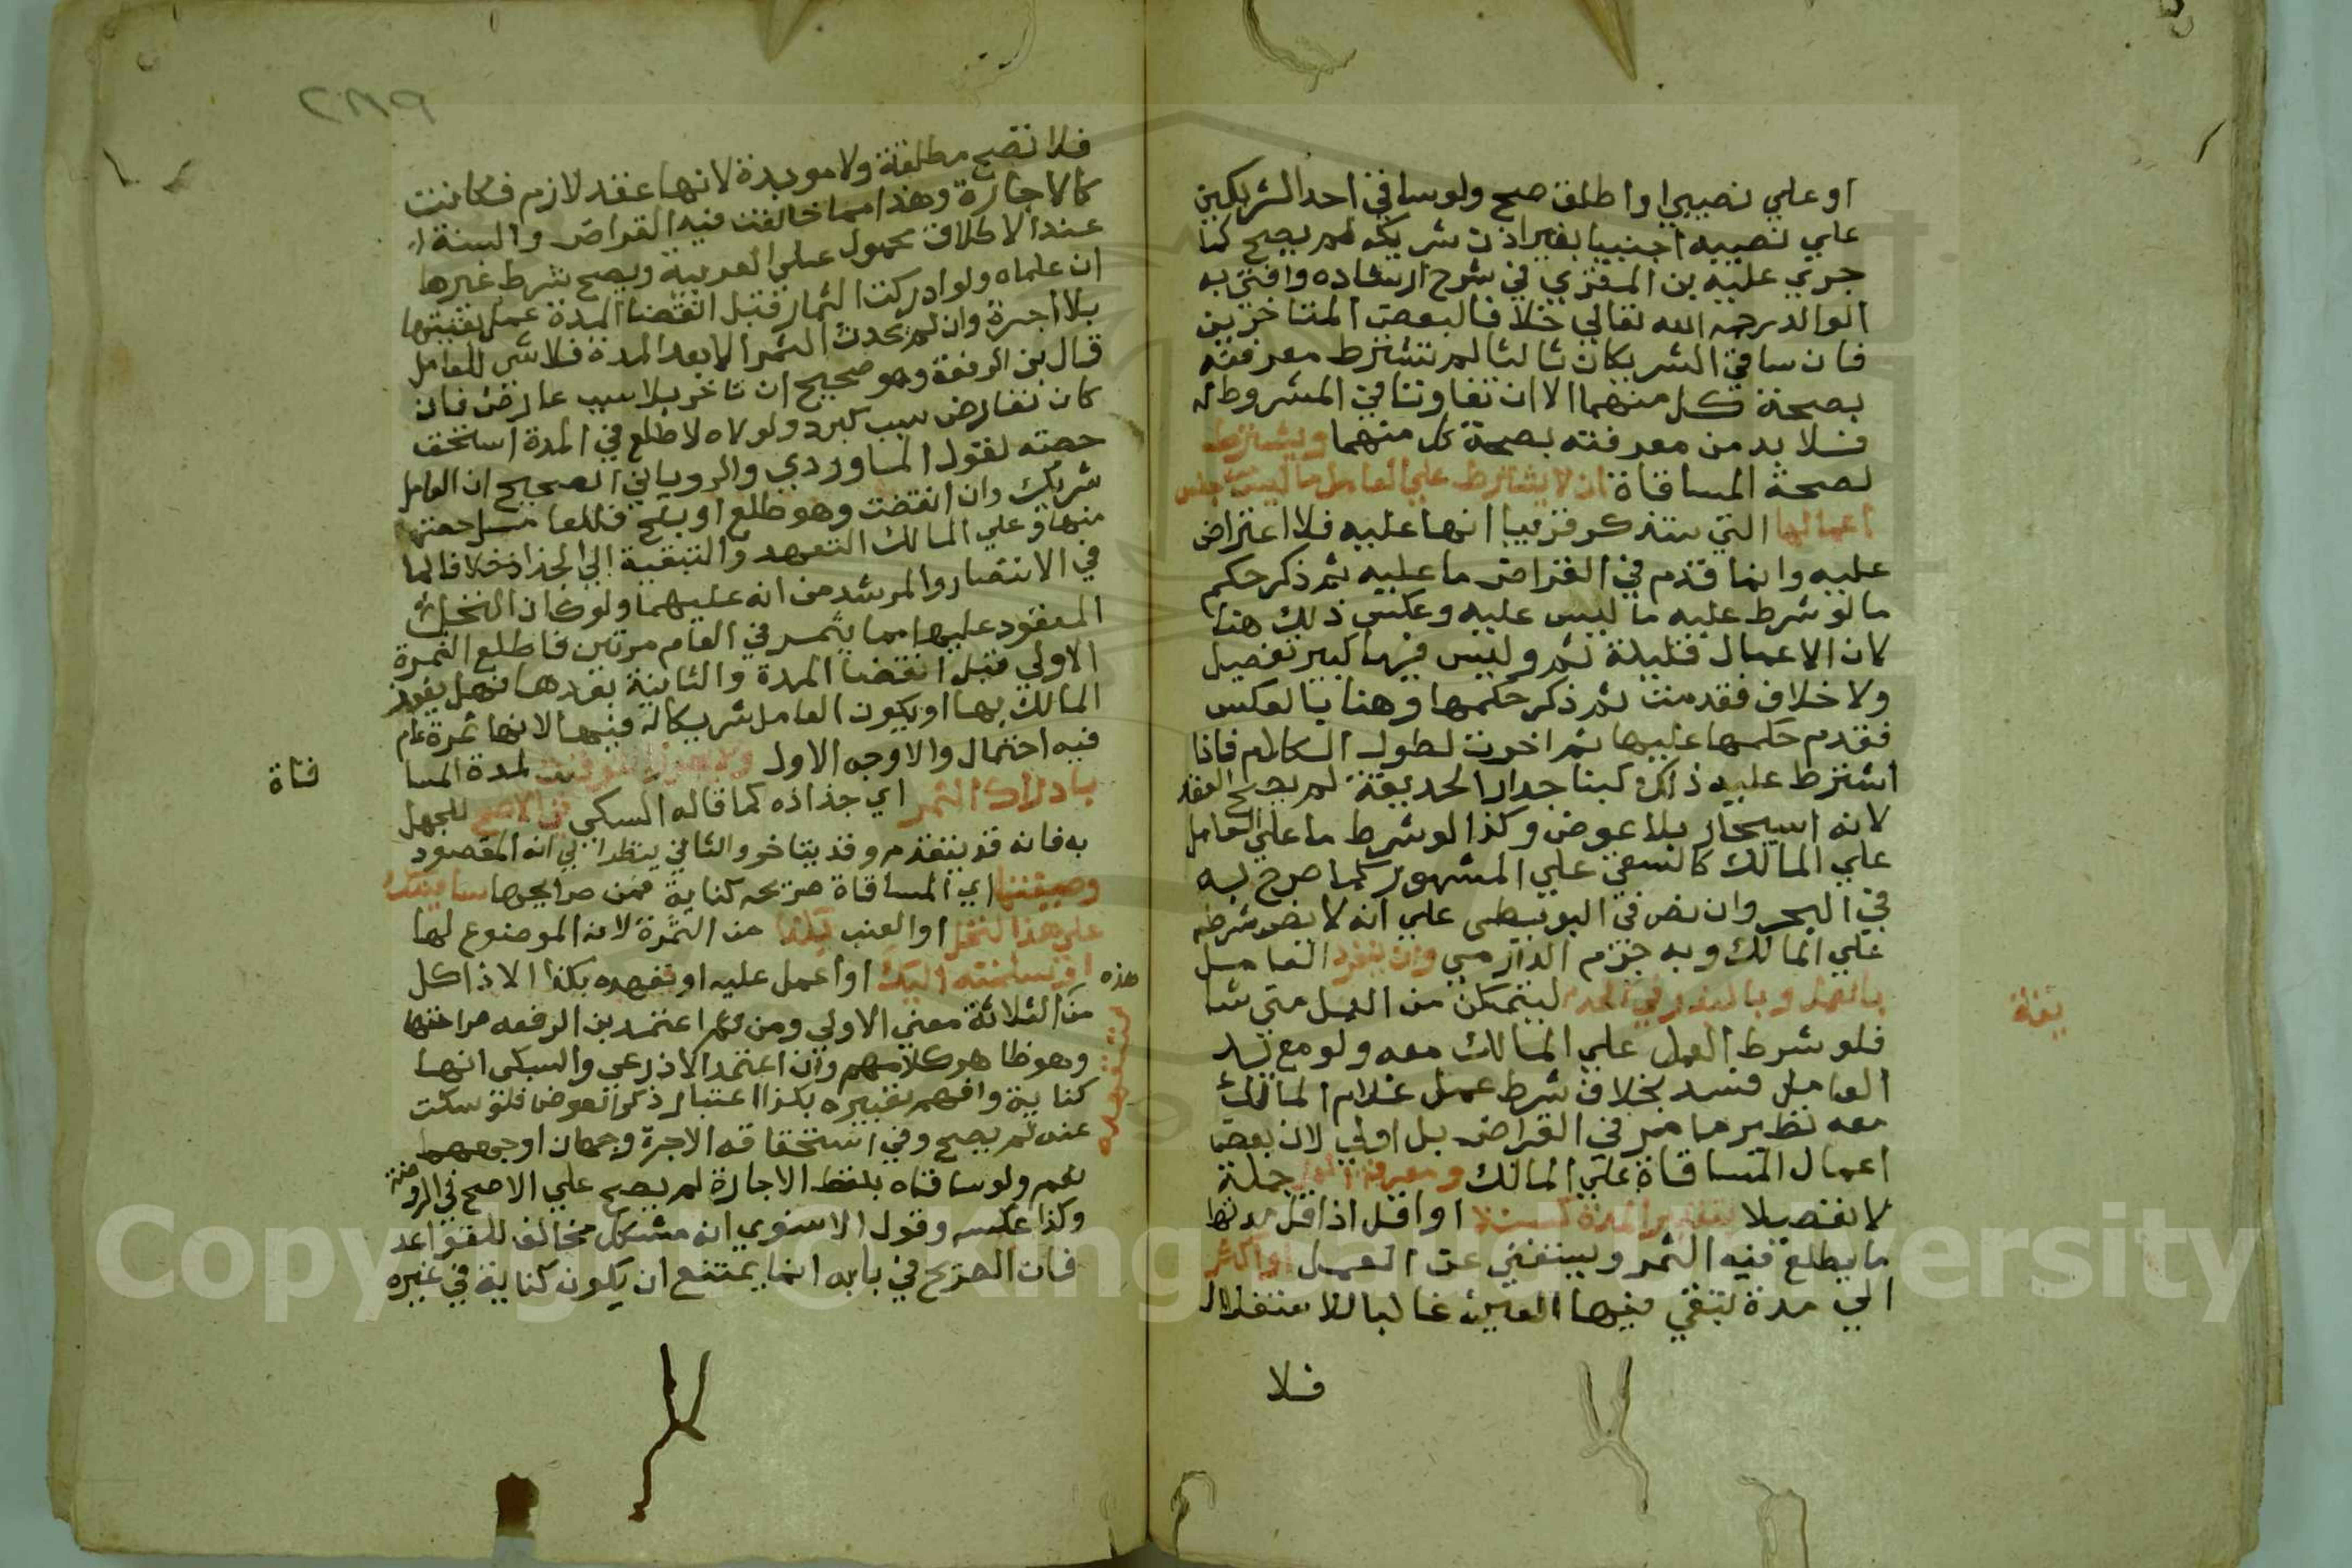 او علي نصيبي او اطلق صح ولو ساقي احد الشريكين
علي نصيبه اجنبيا بغير اذن شريكه لم يصح كما
جري عليه بن المقري في شرح ارشاده وافتي به
الوالد رحمه الله تعالي خلافا لبعض المتاخرين
فان ساقي الشريكان ثالثا لم تشترط معرفته
بصحة كل منهما الا ان تفاوتا في المشروط له
فلا بد من معرفته بصحة كل منهما ويشترط
لصحة المساقاة ان لا يشترط علي العامل ما ليس من جنس
اعمالها التي ستذكر قريبا انها عليه فلا اعتراض
عليه وانما قدم في القراض ما عليه ثم ذكر حكم
ما لو شرط عليه ما ليس عليه وعكس ذلك هنا
لان الاعمال قليلة ثم وليس فيها كبير تفصيل
ولا خلاف فقدمت ثم ذكر حكمها وهنا بالعكس
فقدم حكمها عليها ثم اخرت لطول الكلام فاذا
اشترط عليه ذلك كبنا جدار الحديقة لم يصح العقد
لانه استيجار بلا عوض وكذا لو شرط ما علي العامل
علي المالك كالسقي علي المشهور كما صرح به
في البحر وان نص في البويطي علي انه لا يضر شرطه
علي المالك وبه جزم الدارمي وان ينفرد العامل
بالعمل وباليد في الحديقة ليتمكن من العمل متي شا
فلو شرط العمل علي المالك معه ولو مع يد
العامل فسد بخلاف شرط عمل غلام المالك
معه نظير ما مر في القراض بل اولي لان بعض
اعمال المساقاة علي المالك ومعرفة العمل جملة
لا تفصيلا بتقدير المدة كسنة او اقل اذ اقل مدتها
ما يطلع فيه الثمر ويستغني عن العمل او اكثر
الي مدة تبقي فيها العين غالبا للاستغلال
فلا
فلا تصح مطلقة ولا موبدة لانها عقد لازم فكانت
كالاجارة وهذا مما خالفت فيه القراض والسنة
عند الاطلاق محمول علي العربية ويصح شرط غيرها
ان علماه ولو ادركت الثمار قبل انقضا المدة عمل بقيتها
بلا اجرة وان لم يحدث الثمر الا بعد المدة فلا شي للعامل
قال بن الرفعة وهو صحيح ان تاخر بلا سبب عارض فان
كان بعارض سبب كبرد ولولاه لاطلع في المدة استحق
حصته لقول الماوردي والروياني الصحيح ان العامل
شريك وان انقضت وهو طلع او بلح فللعامل حصته
منها وعلي المالك التعهد والتبقية الي الجذاذ خلافا لما
في الانتصار والمرشد من انه عليهما ولو كان النخل
المعقود عليها مما يثمر في العام مرتين فاطلع الثمرة
الاولي قبل انقضا المدة والثانية بعدها فهل يفوز
المالك بها او يكون العامل شريكا له فيها لانها ثمرة عام
فيه احتمال والاوجه الاول ولا يجوز التوقيت لمدة المسا
قاة
بادراك الثمر اي جذاذه كما قاله السبكي في الاصح للجهل
به فانه قد يتقدم وقد يتاخر والثاني ينظر الي انه المقصود
وصيغتها اي المساقاة صريحه كناية فمن صرايحها ساقيتك
علي هذا النخل او العنب بكذا من الثمرة لانه الموضوع لها
او سلمته اليك او اعمل عليه او تعهده بكذا الاذ كل
هذه
من الثلاثة معني الاولي ومن ثم اعتمد بن الرفعه صراحتها
وهو ظاهر كلامهم وان اعتمد الاذرعي والسبكي انها
كناية وافهم تعبيره بكذا اعتبار ذكر العوض فلو سكت
عنه لم يصح وفي استحقاقه الاجرة وجهان اوجههما
نعم ولو ساقاه بلفظ الاجارة لم يصح علي الاصح في الروضة
وكذا عكسه وقول الاسنوي انه مشكل مخالف للقواعد
فان الصريح في بابه انما يمتنع ان يكون كناية في غيره